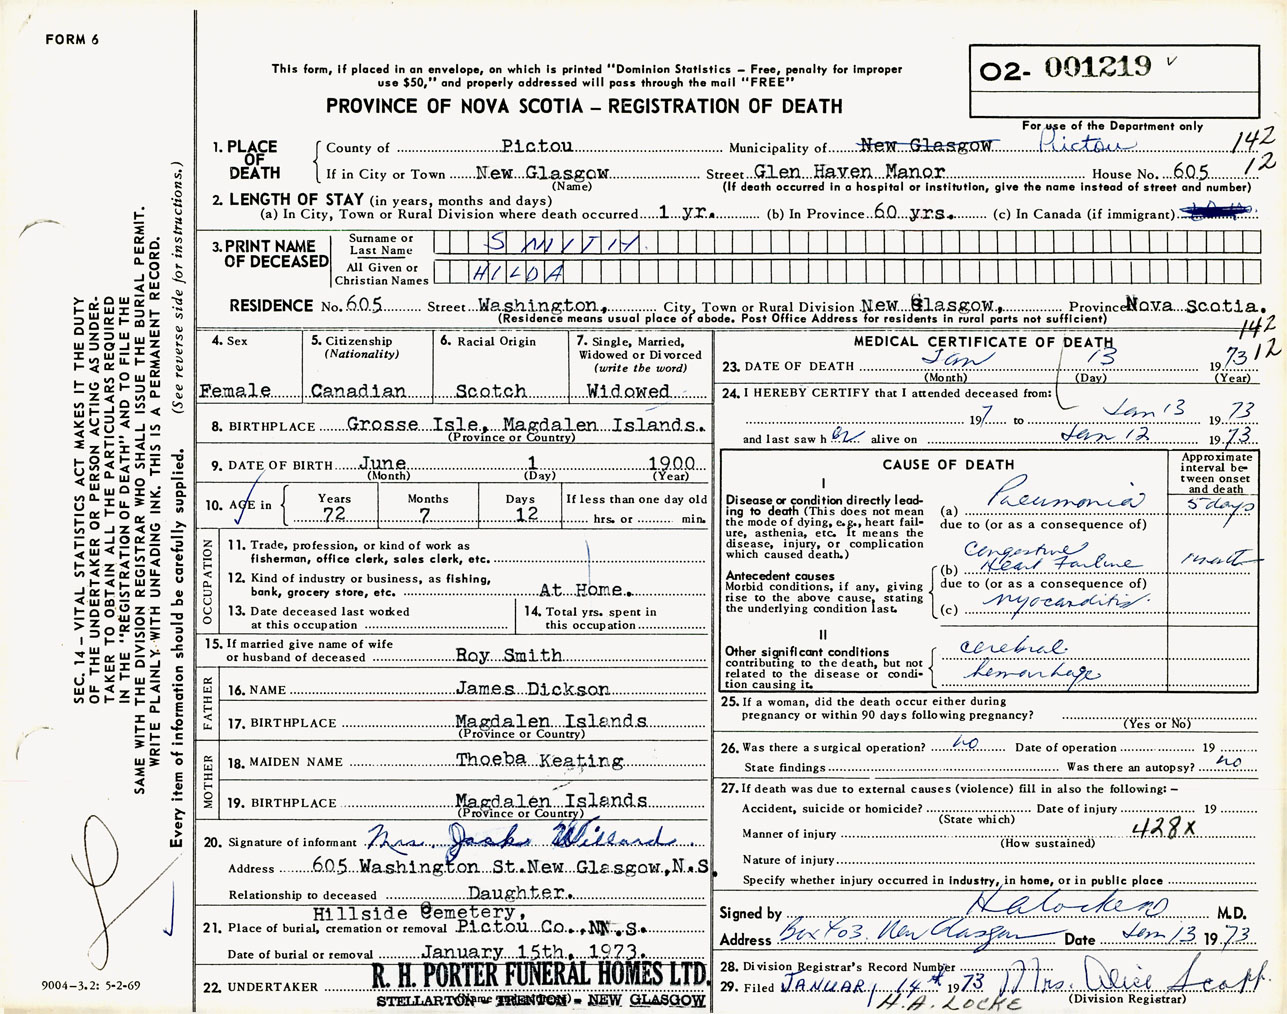 FORM 6
O2- 001219 v
This form, if placed in an envelope, on which is printed "Dominion Statistics — Free, penalty for improper
use $50," and properly addressed will pass through the mail "FREE"
PROVINCE OF NOVA SCOTIA — REGISTRATION OF DEATH
For use of the Department only
1. PLACE OF DEATH
County of Pictou Municipality of New Glasgow Pictou 142
If in City or Town New Glasgow Street Glen Haven Manor House No. 605 12
(Name) (If death occurred in a hospital or institution, give the name instead of street and number)
2. LENGTH OF STAY (in years, months and days)
(a) In City, Town or Rural Division where death occurred 1 yr. (b) In Province 60 yrs. (c) In Canada (if immigrant)
3. PRINT NAME OF DECEASED
Surname or Last Name SMITH
All Given or Christian Names HILDA
RESIDENCE No. 605 Street Washington, City, Town or Rural Division New Glasgow, Province Nova Scotia.
(Residence means usual place of abode. Post Office Address for residents in rural parts not sufficient)
142
12
4. Sex
Female
5. Citizenship
(Nationality)
Canadian
6. Racial Origin
Scotch
7. Single, Married,
Widowed or Divorced
(write the word)
Widowed
8. BIRTHPLACE Grosse Isle, Magdalen Islands.
(Province or Country)
9. DATE OF BIRTH June 1 1900
(Month) (Day) (Year)
10. AGE in Years Months Days If less than one day old
72 7 12 hrs. or min.
OCCUPATION
11. Trade, profession, or kind of work as
fisherman, office clerk, sales clerk, etc.
12. Kind of industry or business, as fishing,
bank, grocery store, etc. At Home.
13. Date deceased last worked
at this occupation
14. Total yrs. spent in
this occupation
15. If married give name of wife
or husband of deceased Roy Smith
FATHER
16. NAME James Dickson
17. BIRTHPLACE Magdalen Islands
(Province or Country)
MOTHER
18. MAIDEN NAME Thoeba Keating
19. BIRTHPLACE Magdalen Islands
(Province or Country)
20. Signature of informant Mrs. Jack Willard
Address 605 Washington St. New Glasgow, N.S.
Relationship to deceased Daughter.
Hillside Cemetery,
21. Place of burial, cremation or removal Pictou Co., N.S.
Date of burial or removal January 15th, 1973.
22. UNDERTAKER R. H. PORTER FUNERAL HOMES LTD.
STELLARTON - TRENTON - NEW GLASGOW
MEDICAL CERTIFICATE OF DEATH
23. DATE OF DEATH Jan 13 1973
(Month) (Day) (Year)
24. I HEREBY CERTIFY that I attended deceased from:
197 to Jan 13 1973
and last saw her alive on Jan 12 1973
CAUSE OF DEATH
Approximate
interval be-
tween onset
and death
I
Disease or condition directly lead-
ing to death (This does not mean
the mode of dying, e.g., heart fail-
ure, asthenia, etc. It means the
disease, injury, or complication
which caused death.)
(a) Pneumonia 5 days
due to (or as a consequence of)
Antecedent causes
Morbid conditions, if any, giving
rise to the above cause, stating
the underlying condition last.
(b) Congestive
Heart Failure
due to (or as a consequence of)
(c) myocarditis.
II
Other significant conditions
contributing to the death, but not
related to the disease or condi-
tion causing it.
cerebral
hemorrhage
25. If a woman, did the death occur either during
pregnancy or within 90 days following pregnancy?
(Yes or No)
26. Was there a surgical operation? no Date of operation 19
State findings Was there an autopsy? no
27. If death was due to external causes (violence) fill in also the following: —
Accident, suicide or homicide? Date of injury 19
(State which)
Manner of injury 428X
(How sustained)
Nature of injury
Specify whether injury occurred in industry, in home, or in public place
Signed by H A Locke M.D.
Address Box 403, New Glasgow Date Jan 13 1973
28. Division Registrar's Record Number
29. Filed JANUARY 14th 1973 Mrs. Alice Scapp.
(Division Registrar)
H.A. LOCKE
SEC. 14 — VITAL STATISTICS ACT MAKES IT THE DUTY
OF THE UNDERTAKER OR PERSON ACTING AS UNDER-
TAKER TO OBTAIN ALL THE PARTICULARS REQUIRED
IN THE "REGISTRATION OF DEATH" AND TO FILE THE
SAME WITH THE DIVISION REGISTRAR WHO SHALL ISSUE THE BURIAL PERMIT.
WRITE PLAINLY WITH UNFADING INK. THIS IS A PERMANENT RECORD.
Every item of information should be carefully supplied. (See reverse side for instructions.)
9004-3.2: 5-2-69